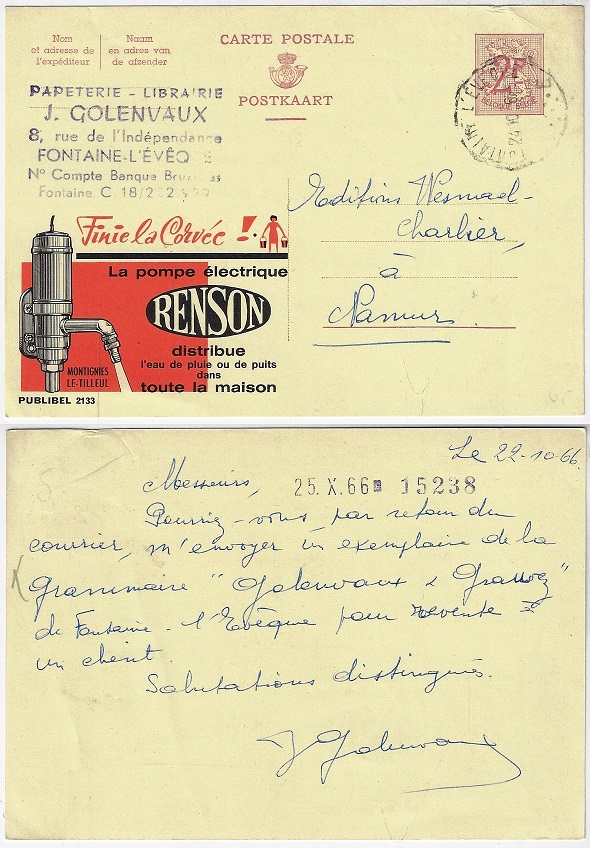 Nom
et adresse de
l'expéditeur
Naam
en adres van
de afzender
CARTE POSTALE
POSTKAART
2F
PAPETERIE - LIBRAIRIE
J. GOLENVAUX
8, rue de l'Indépendance
FONTAINE-L'ÉVÊQ E
N° Compte Banque Bruxelles
Fontaine C. 18/
Editions Wesmael-
Charlier,
à
Namur.
Finie la Corvée !
La pompe électrique
RENSON
distribue
l'eau de pluie ou de puits
dans
toute la maison
MONTIGNIES
LE-TILLEUL
PUBLIBEL 2133
Le 22-10-66.
Messieurs,
25. X. 66 15238
Pourriez-vous, par retour du
courrier, m'envoyer un exemplaire de la
grammaire "Golenvaux &
de Fontaine-l'Evêque pour revente à
un client.
Salutations distingués.
J Golenvaux